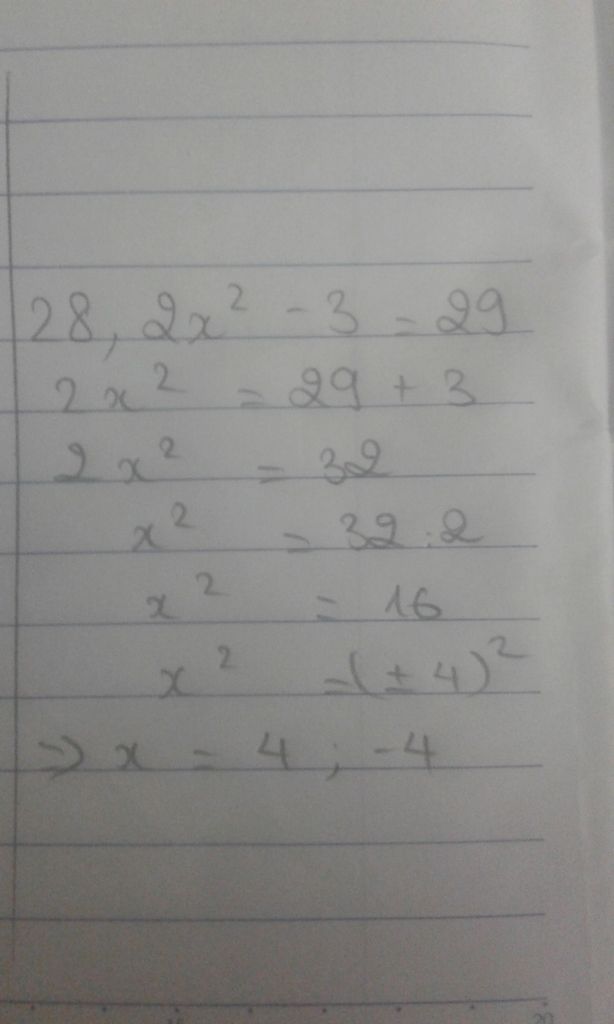 28, 2x² - 3 = 29
2x² = 29 + 3
2x² = 32
x² = 32 : 2
x² = 16
x² = (± 4)²
⇒ x = 4 ; -4